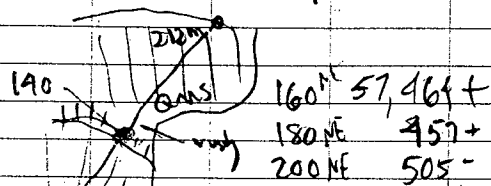 212m
140
Qms
160NE 57,464+
180NE 457+
200NE 505-